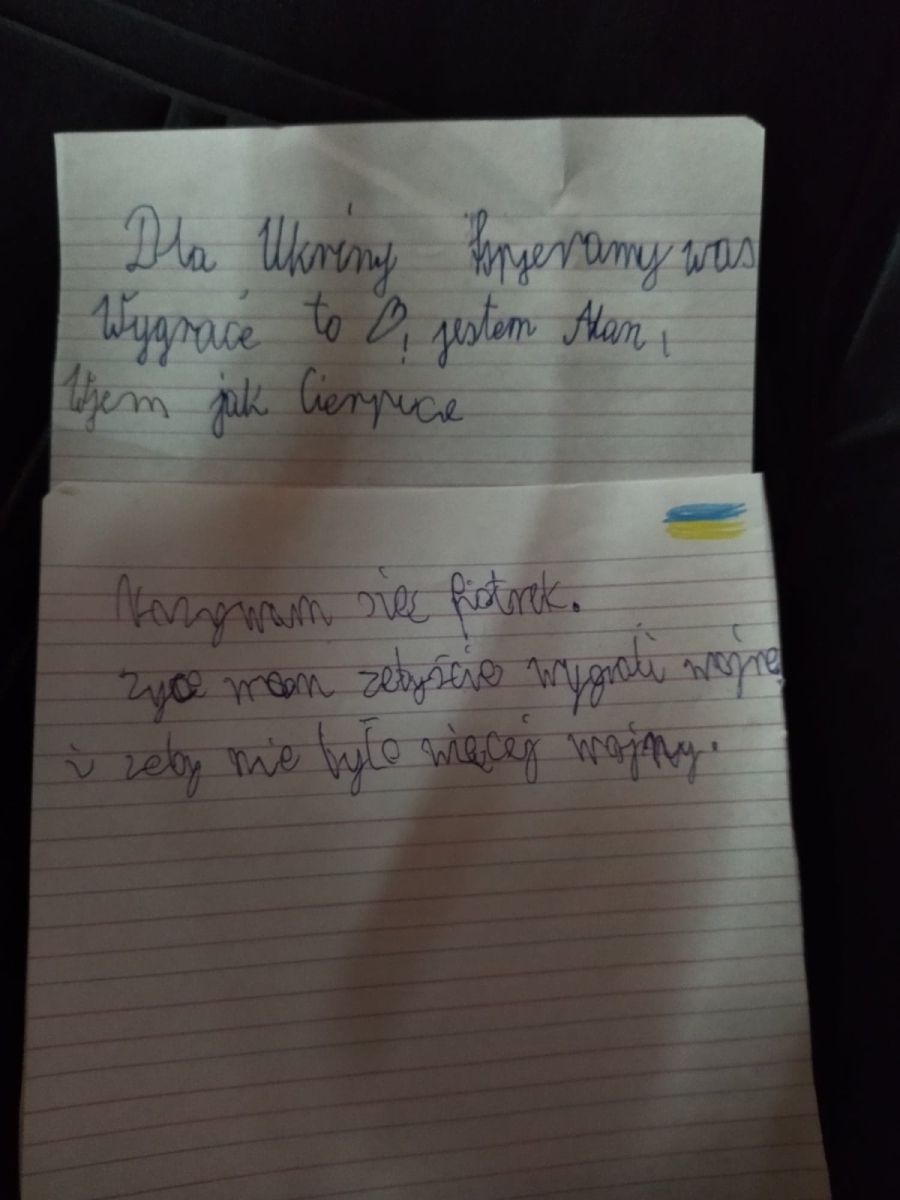 Dla Ukriny Wspjeramy was
Wygracie to ♡! jestem Alan,
Wjem jak Cierpicie
Nazywam się piotrek.
życe wam żebyście wygrali wojnę
i żeby nie było więcej wojny.